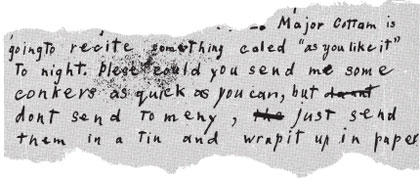 Major Cottam is
going to recite something caled "as you like it"
To night. Plese could you send me some
conkers as quick as you can, but
dont send To meny, just send
them in a Tin and wrap it up in paper